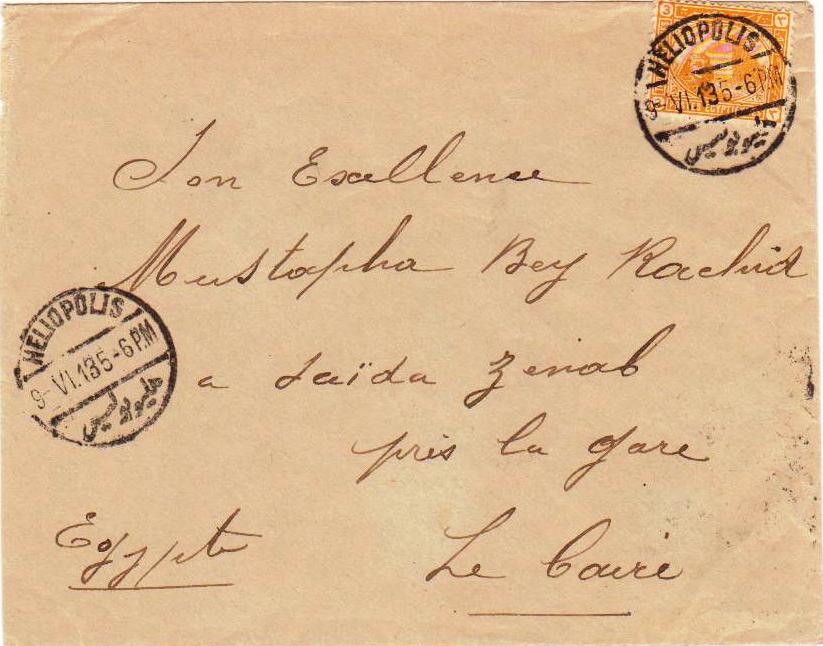 HELIOPOLIS
9-VI.13 5-6 P.M
هليوبوليس
3 ٣
EGYPT
Son Excellence
Mustapha Bey Rachid
a Saïda Zenab
près la gare
Le Caire
Egypte
HELIOPOLIS
9-VI.13 5-6 P.M
هليوبوليس